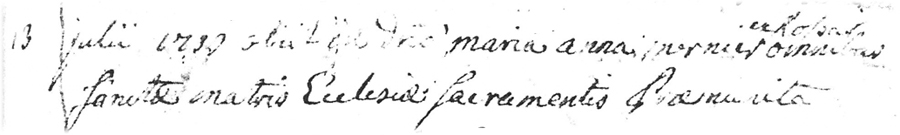 13 julii 1739 obiit in dno maria anna pernier omnibus
sanctæ matris Ecclesiæ sacramentis Præmunita